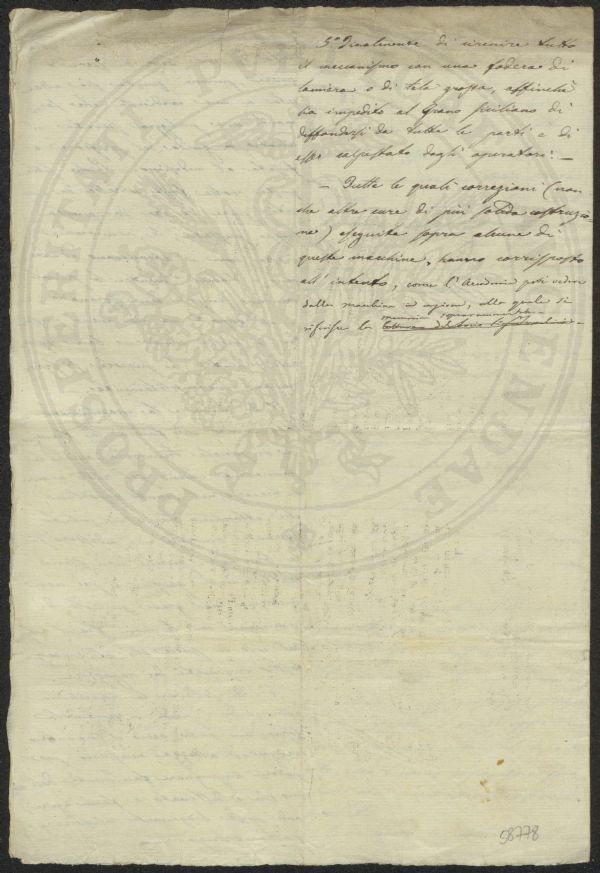 5.° Finalmente di vienire tutto
il meccanismo con una fodera di
lamiera o di tela grossa, affinchè
sia impedito al Grano Siciliano di
diffondersi da tutte le parti e di
esser calpestato dagli operatori. —
— Tutte le quali correzioni (non
che altre cure di più solida costruzio-
ne) eseguite sopra alcune di
queste macchine, hanno corrisposto
all' intento, come l'Accademia potè vedere
dalla macchina in azione, alla quale si
riferisce la
memoria
58778
PROSPERITATI PUBLICAE